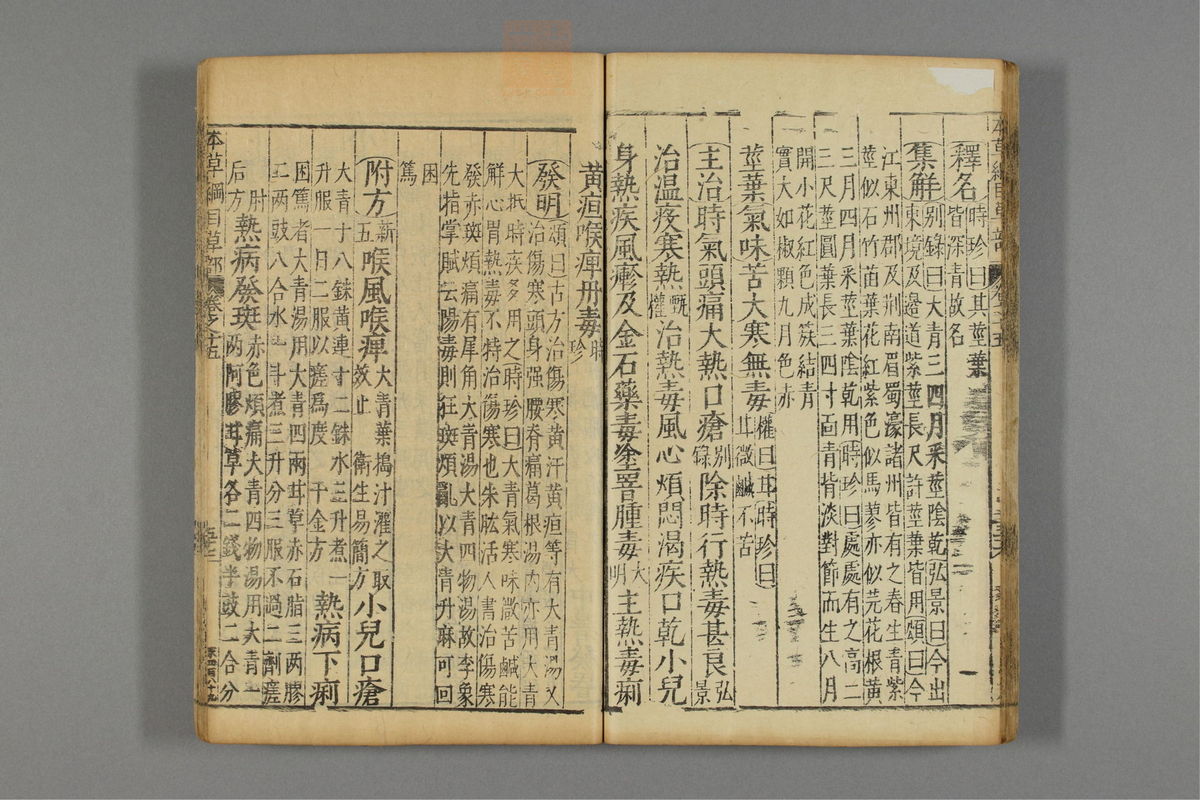 釋名時珍曰其莖葉
皆深青故名
集解別錄曰大青三四月采莖陰乾弘景曰今出
東境及邊道紫莖長尺許莖葉皆用頌曰今
江東州郡及荆南眉蜀濠諸州皆有之春生青紫
莖似石竹苗葉花紅紫色似馬蓼亦似芫花根黃
三月四月采莖葉陰乾用時珍曰處處有之高二
三尺莖圓葉長三四寸面青背淡對節而生八月
開小花紅色成簇結青
實大如椒顆九月色赤
莖葉氣味苦大寒無毒權曰甘時珍曰
甘微鹹不苦
主治時氣頭痛大熱口瘡別錄除時行熱毒甚良弘景
治溫疫寒熱甄權治熱毒風心煩悶渴疾口乾小兒
身熱疾風瘮及金石藥毒塗罯腫毒大明主熱毒痢
黃疸喉痺丹毒時珍
發明頌曰古方治傷寒黃汗黃疸等有大青湯又
治傷寒頭身强腰脊痛葛根湯內亦用大青
大抵時疾多用之時珍曰大青氣寒味微苦鹹能
解心胃熱毒不特治傷寒也朱肱活人書治傷寒
發赤斑煩痛有犀角大青湯大青四物湯故李象
先指掌賦云陽毒則狂斑煩亂以大青升麻可回
困
篤
附方新五喉風喉痺大青葉搗汁灌之取效止衛生易簡方小兒口瘡
大青十八銖黃連十二銖水三升煮一
升服一日二服以瘥爲度千金方熱病下痢
困篤者大青湯用大青四兩甘草赤石脂三两膠
二两豉八合水一斗煮三升分三服不過二劑瘥
肘后方熱病發斑赤色煩痛大青四物湯用大青一
两阿膠甘草各二錢半豉二合分
本草綱目草部 卷之十五